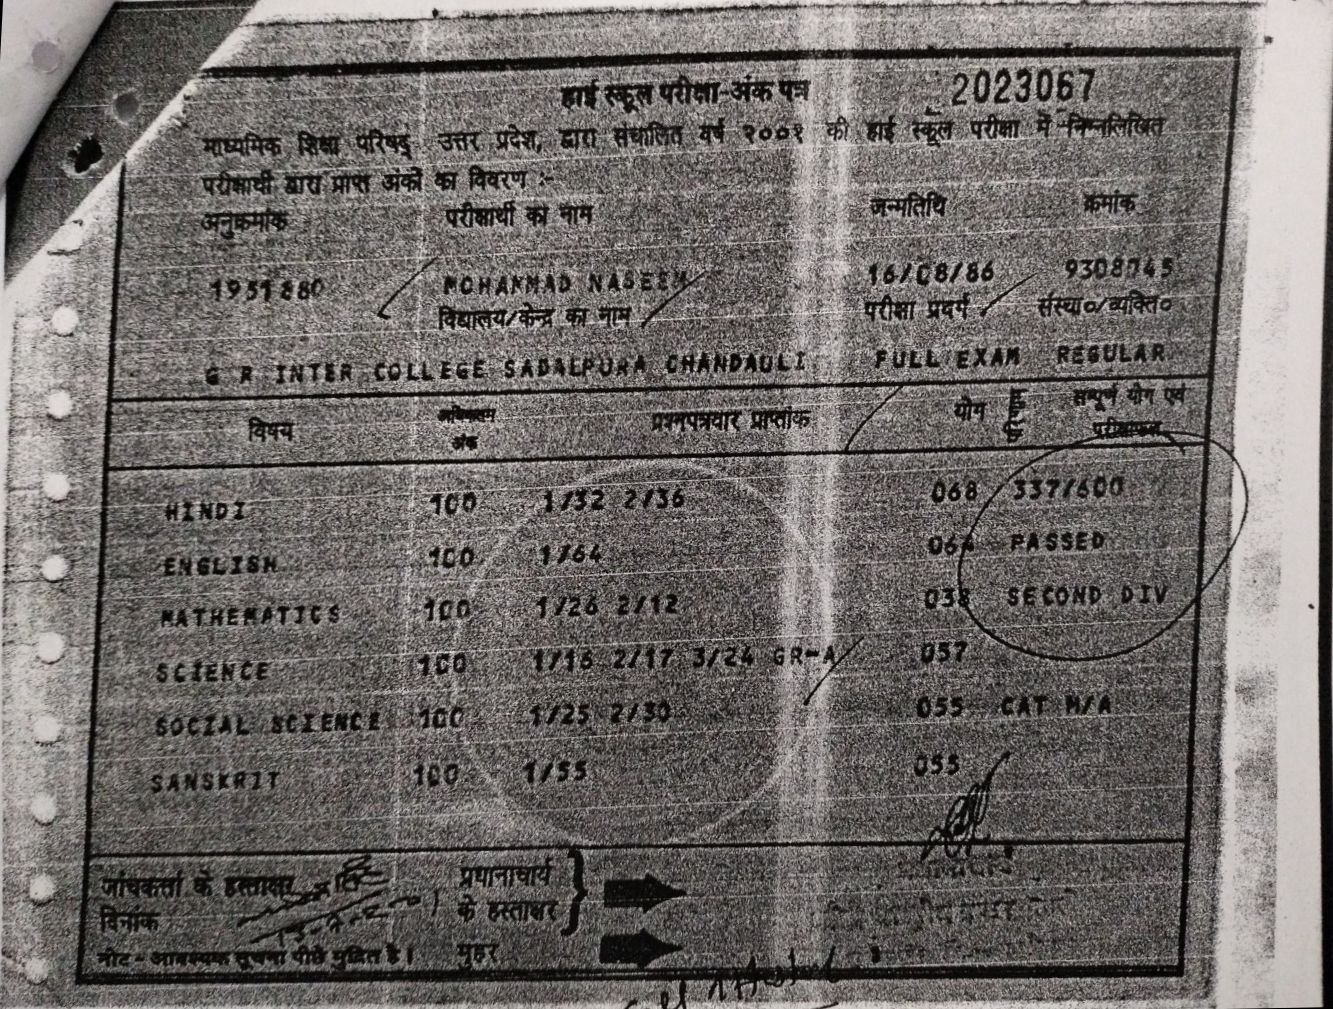 हाई स्कूल परीक्षा-अंक पत्र 2023067
माध्यमिक शिक्षा परिषद् उत्तर प्रदेश, द्वारा संचालित वर्ष २००१ की हाई स्कूल परीक्षा में निम्नलिखित
परीक्षार्थी द्वारा प्राप्त अंकों का विवरण :-
अनुक्रमांक परीक्षार्थी का नाम जन्मतिथि क्रमांक
1951880 MOHAMMAD NASEEM 16/08/86 9308045
विद्यालय/केन्द्र का नाम परीक्षा प्रवर्ग संस्था०/व्यक्ति०
G R INTER COLLEGE SADALPURA CHANDAULI FULL EXAM REGULAR
विषय अधिकतम अंक प्रश्नपत्रवार प्राप्तांक योग सम्पूर्ण योग एवं परीक्षाफल
HINDI 100 1/32 2/36 068 337/600
ENGLISH 100 1/64 064 PASSED
MATHEMATICS 100 1/26 2/12 038 SECOND DIV
SCIENCE 100 1/16 2/17 3/24 GR-A 057
SOCIAL SCIENCE 100 1/25 2/30 055 CAT M/A
SANSKRIT 100 1/55 055
जांचकर्ता के हस्ताक्षर प्रधानाचार्य
दिनांक के हस्ताक्षर
नोट - आवश्यक सूचना पीछे मुद्रित है। मुहर